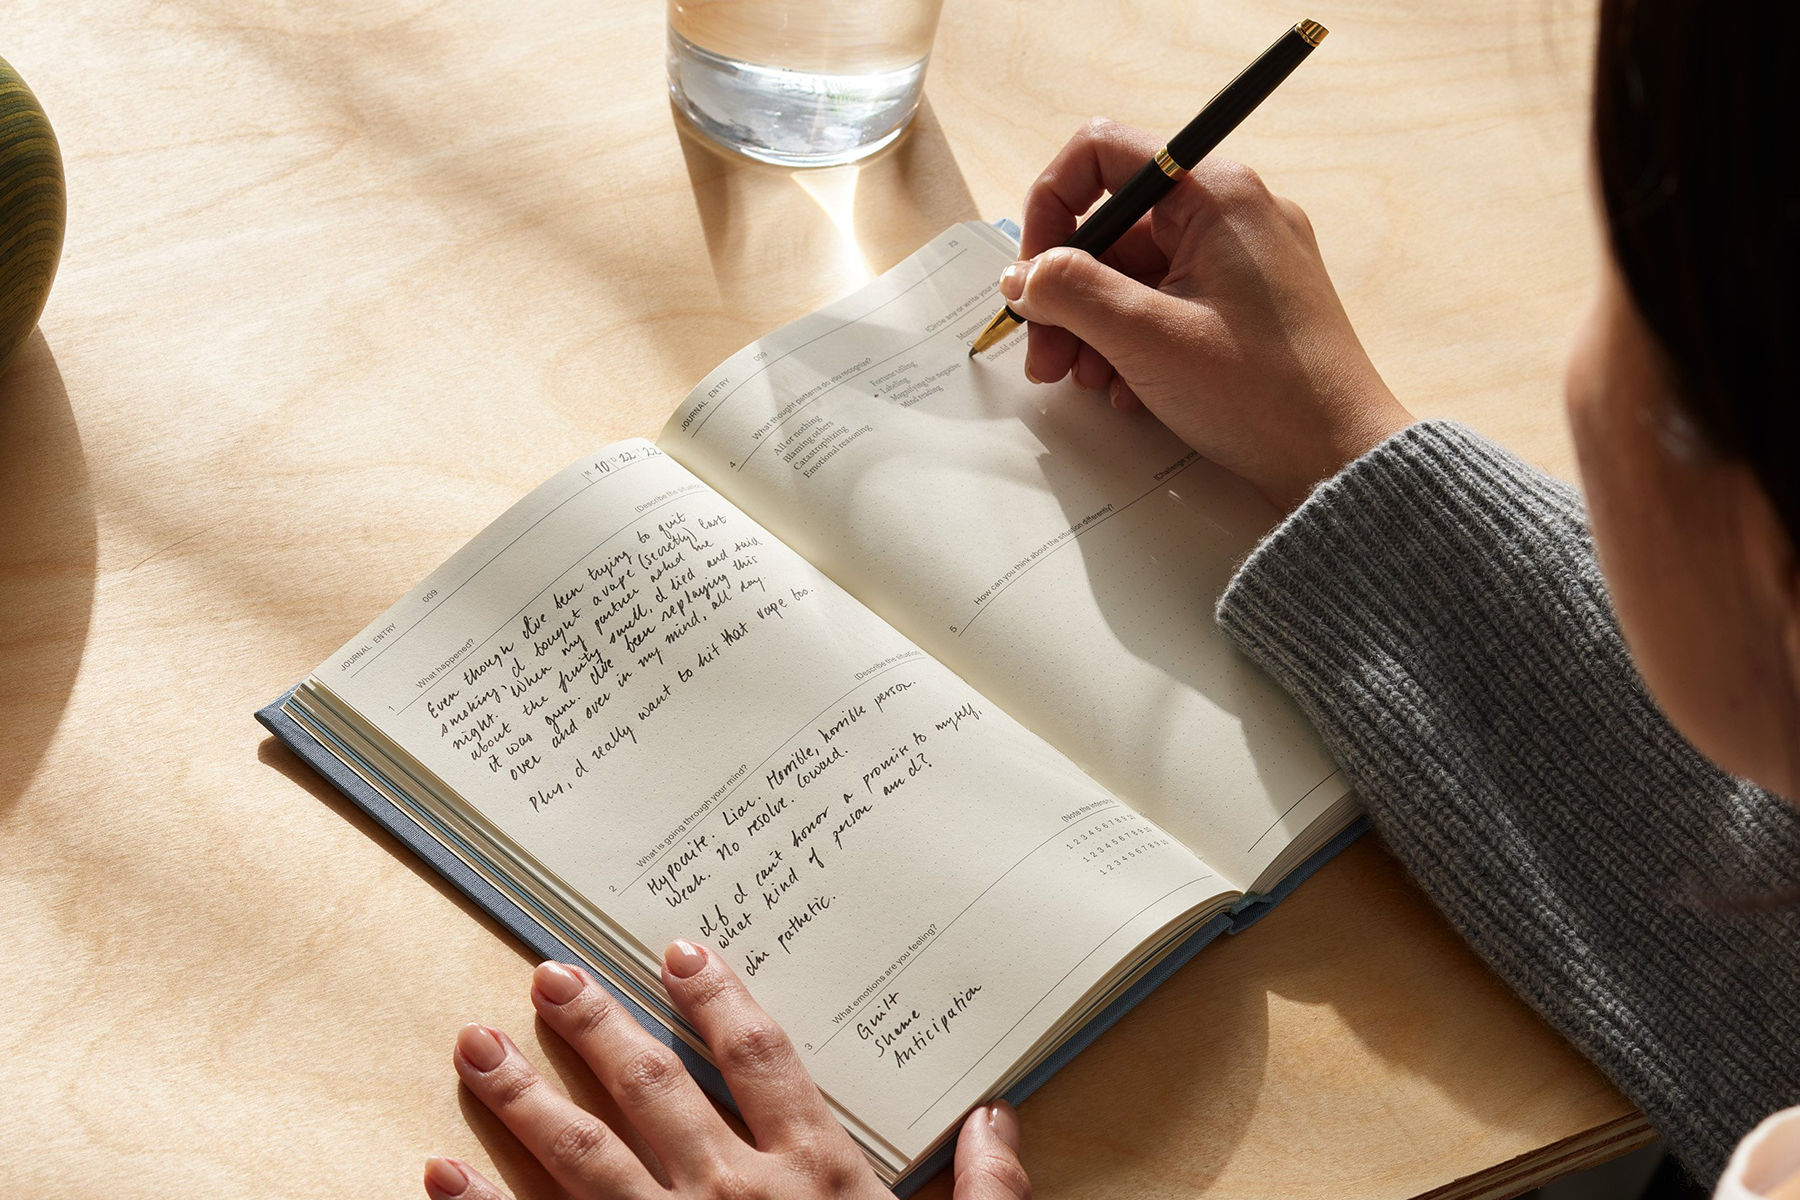 JOURNAL ENTRY 009
M 10 D 22 Y 22
1 What happened? (Describe the situation
Even though I've been trying to quit
smoking, I bought a vape (secretly) last
night. When my partner asked me
about the fruity smell, I lied and said
it was gum. I've been replaying this
over and over in my mind, all day.
Plus, I really want to hit that vape too.
2 What is going through your mind? (Describe the situation
Hypocrite. Liar. Horrible, horrible person.
Weak. No resolve. Coward.
If I can't honor a promise to myself,
what kind of person am I?
I'm pathetic.
3 What emotions are you feeling? (Note the intensity
Guilt 1 2 3 4 5 6 7 8 9 10
Shame 1 2 3 4 5 6 7 8 9 10
Anticipation 1 2 3 4 5 6 7 8 9 10
JOURNAL ENTRY 009 23
4 What thought patterns do you recognize? (Circle any or write your
All or nothing
Blaming others
Catastrophizing
Emotional reasoning
Fortune telling
Labeling
Magnifying the negative
Mind reading
Minimizing
Should
5 How can you think about the situation differently? (Challenge